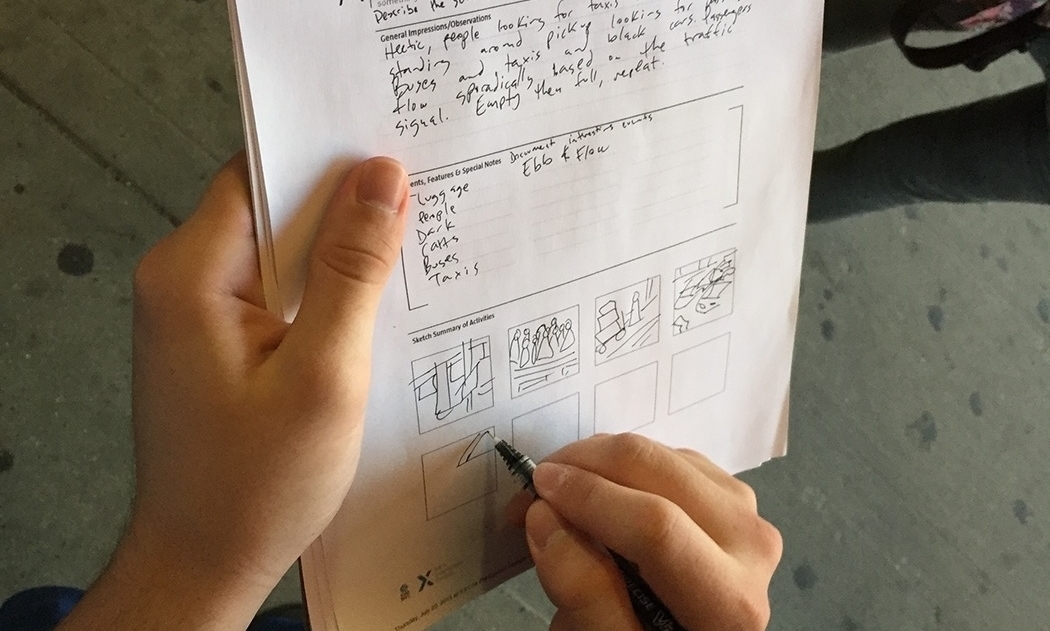 Describe the
General Impressions/Observations
Hectic, people looking for taxis
standing around pickup looking for
Buses and taxis and black cars. Passengers
flow sporadically based on the traffic
signal. Empty then full, repeat.
ents, Features & Special Notes Document interesting events
Luggage Ebb & Flow
People
Dark
Carts
Buses
Taxis
Sketch Summary of Activities
X